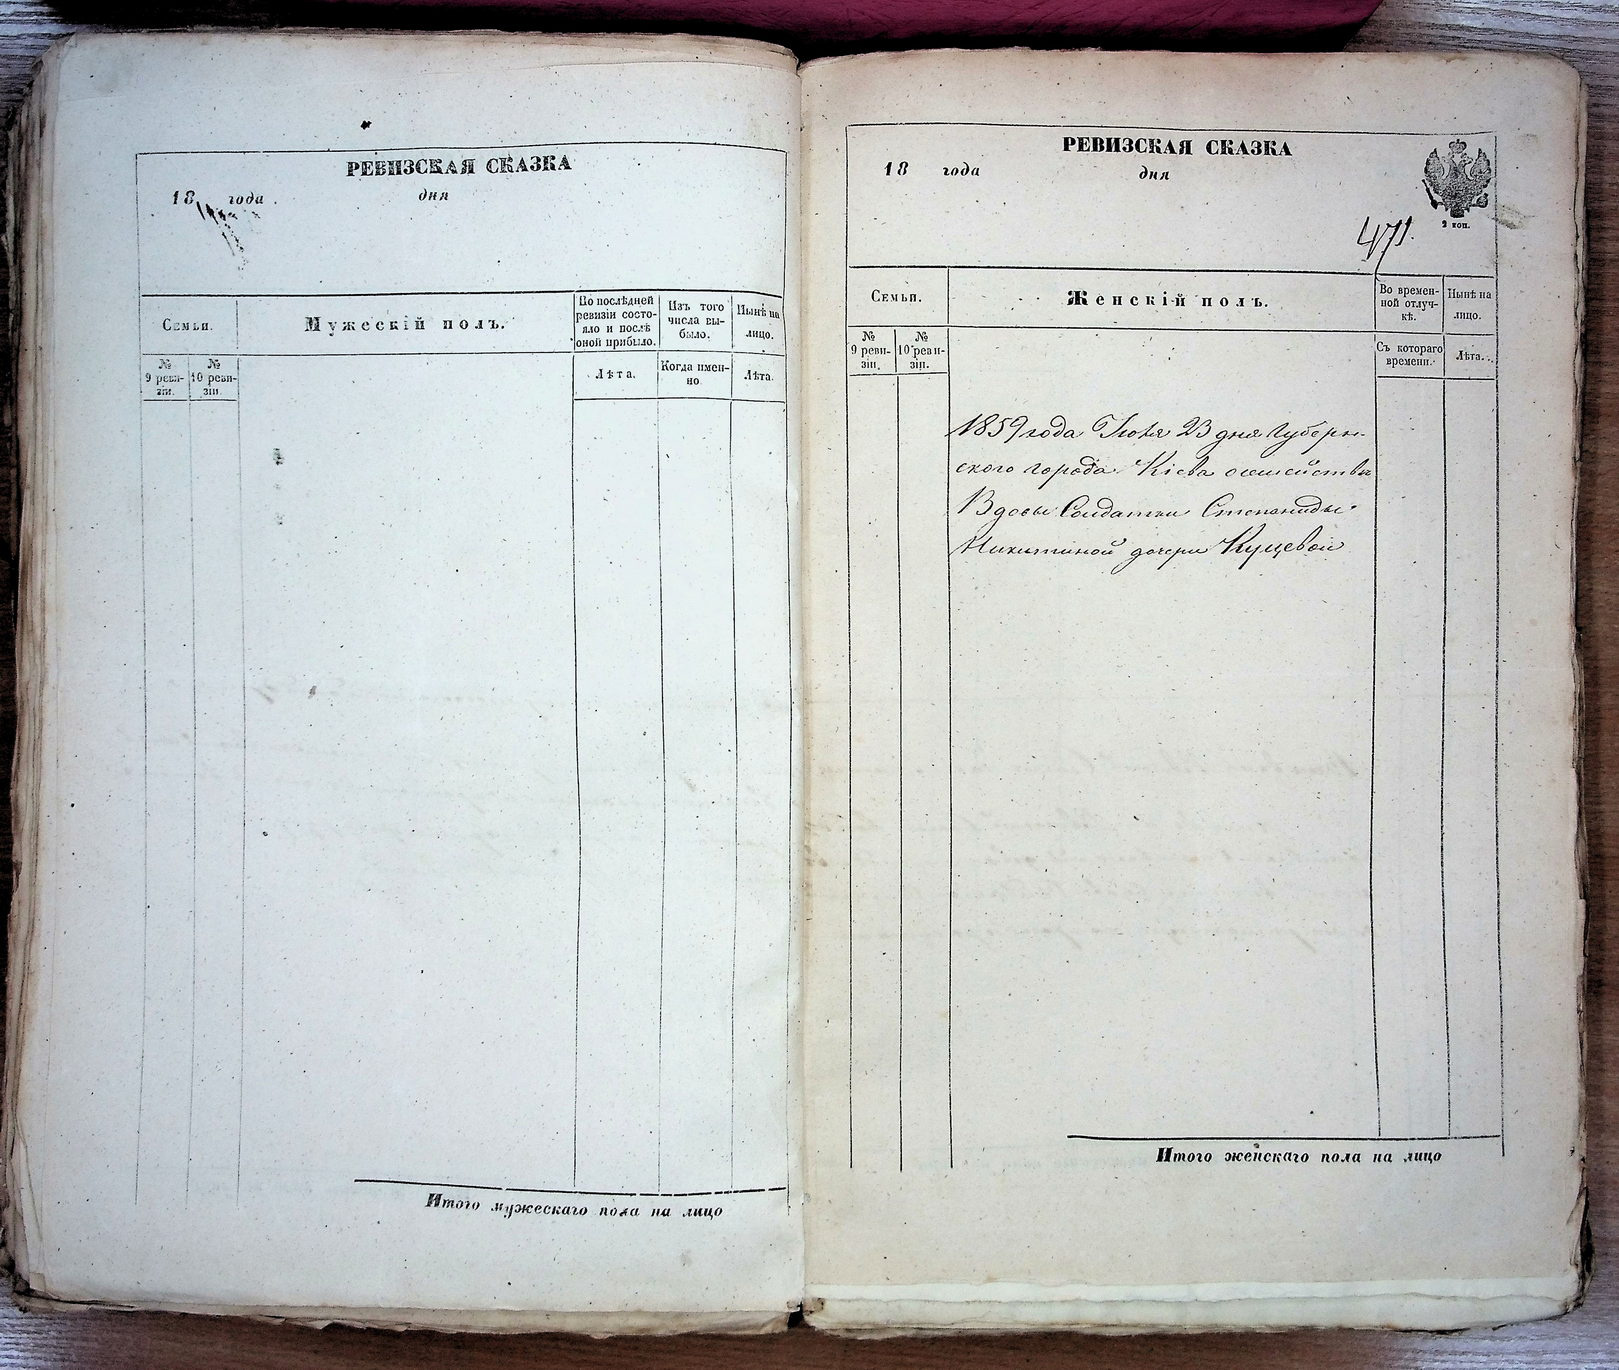 РЕВИЗСКАЯ СКАЗКА
18 года дня
Семьи.
Мужескій полъ.
По послѣдней ревизіи состояло и послѣ оной прибыло.
Изъ того числа выбыло.
Нынѣ на лицо.
№ 9 ревизіи.
№ 10 ревизіи.
Лѣта.
Когда именно
Лѣта.
Итого мужескаго пола на лицо
РЕВИЗСКАЯ СКАЗКА
18 года дня
2 коп.
471.
Семьи.
Женскій полъ.
Во временной отлучкѣ.
Нынѣ на лицо.
№ 9 ревизіи.
№ 10 ревизіи.
Съ котораго времени.
Лѣта.
1859 года Іюля 23 дня Губернскаго города Кіева о семействѣ
Вдовы Солдатки Степаниды
Никитиной дочери Куцевой
Итого женскаго пола на лицо